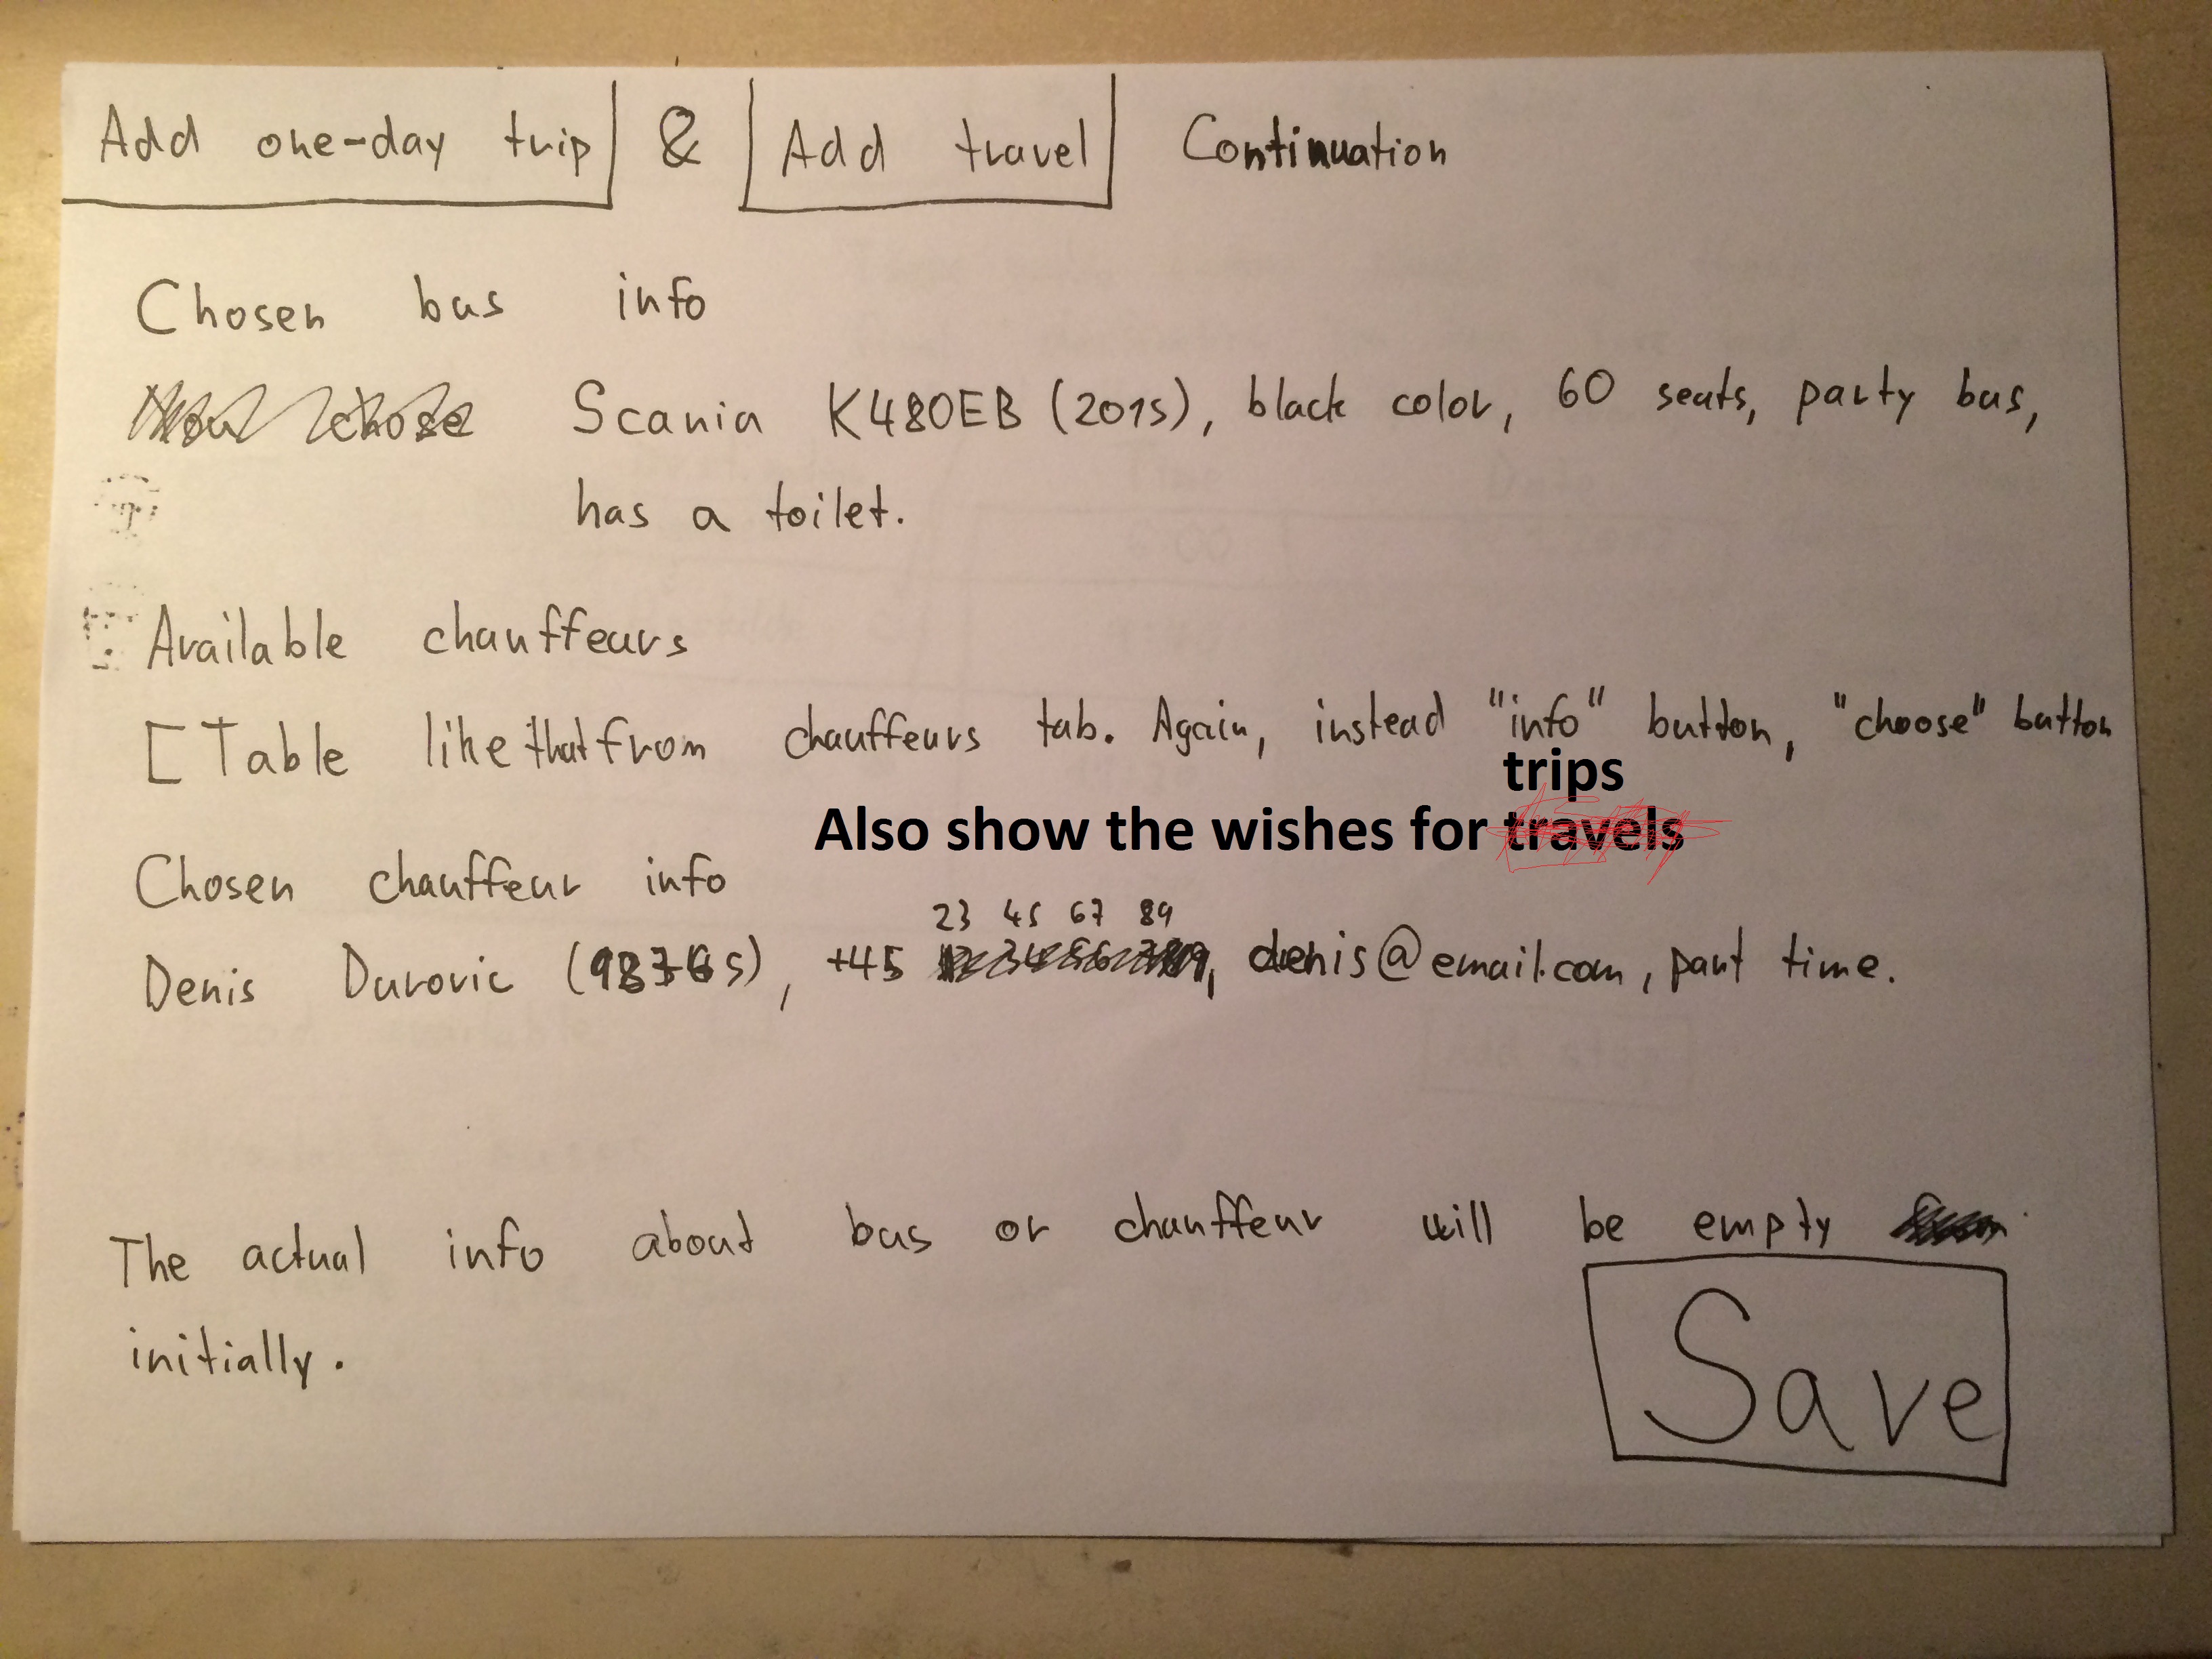 Add one-day trip & Add travel Continuation
Chosen bus info
Scania K480EB (2015), black color, 60 seats, party bus,
has a toilet.
Available chauffeurs
[Table like that from chauffeurs tab. Again, instead "info" button, "choose" button
trips
Also show the wishes for travels
Chosen chauffeur info
23 45 67 89
Denis Durovic (98765), +45 denis@email.com, part time.
The actual info about bus or chauffeur will be empty
initially.
Save